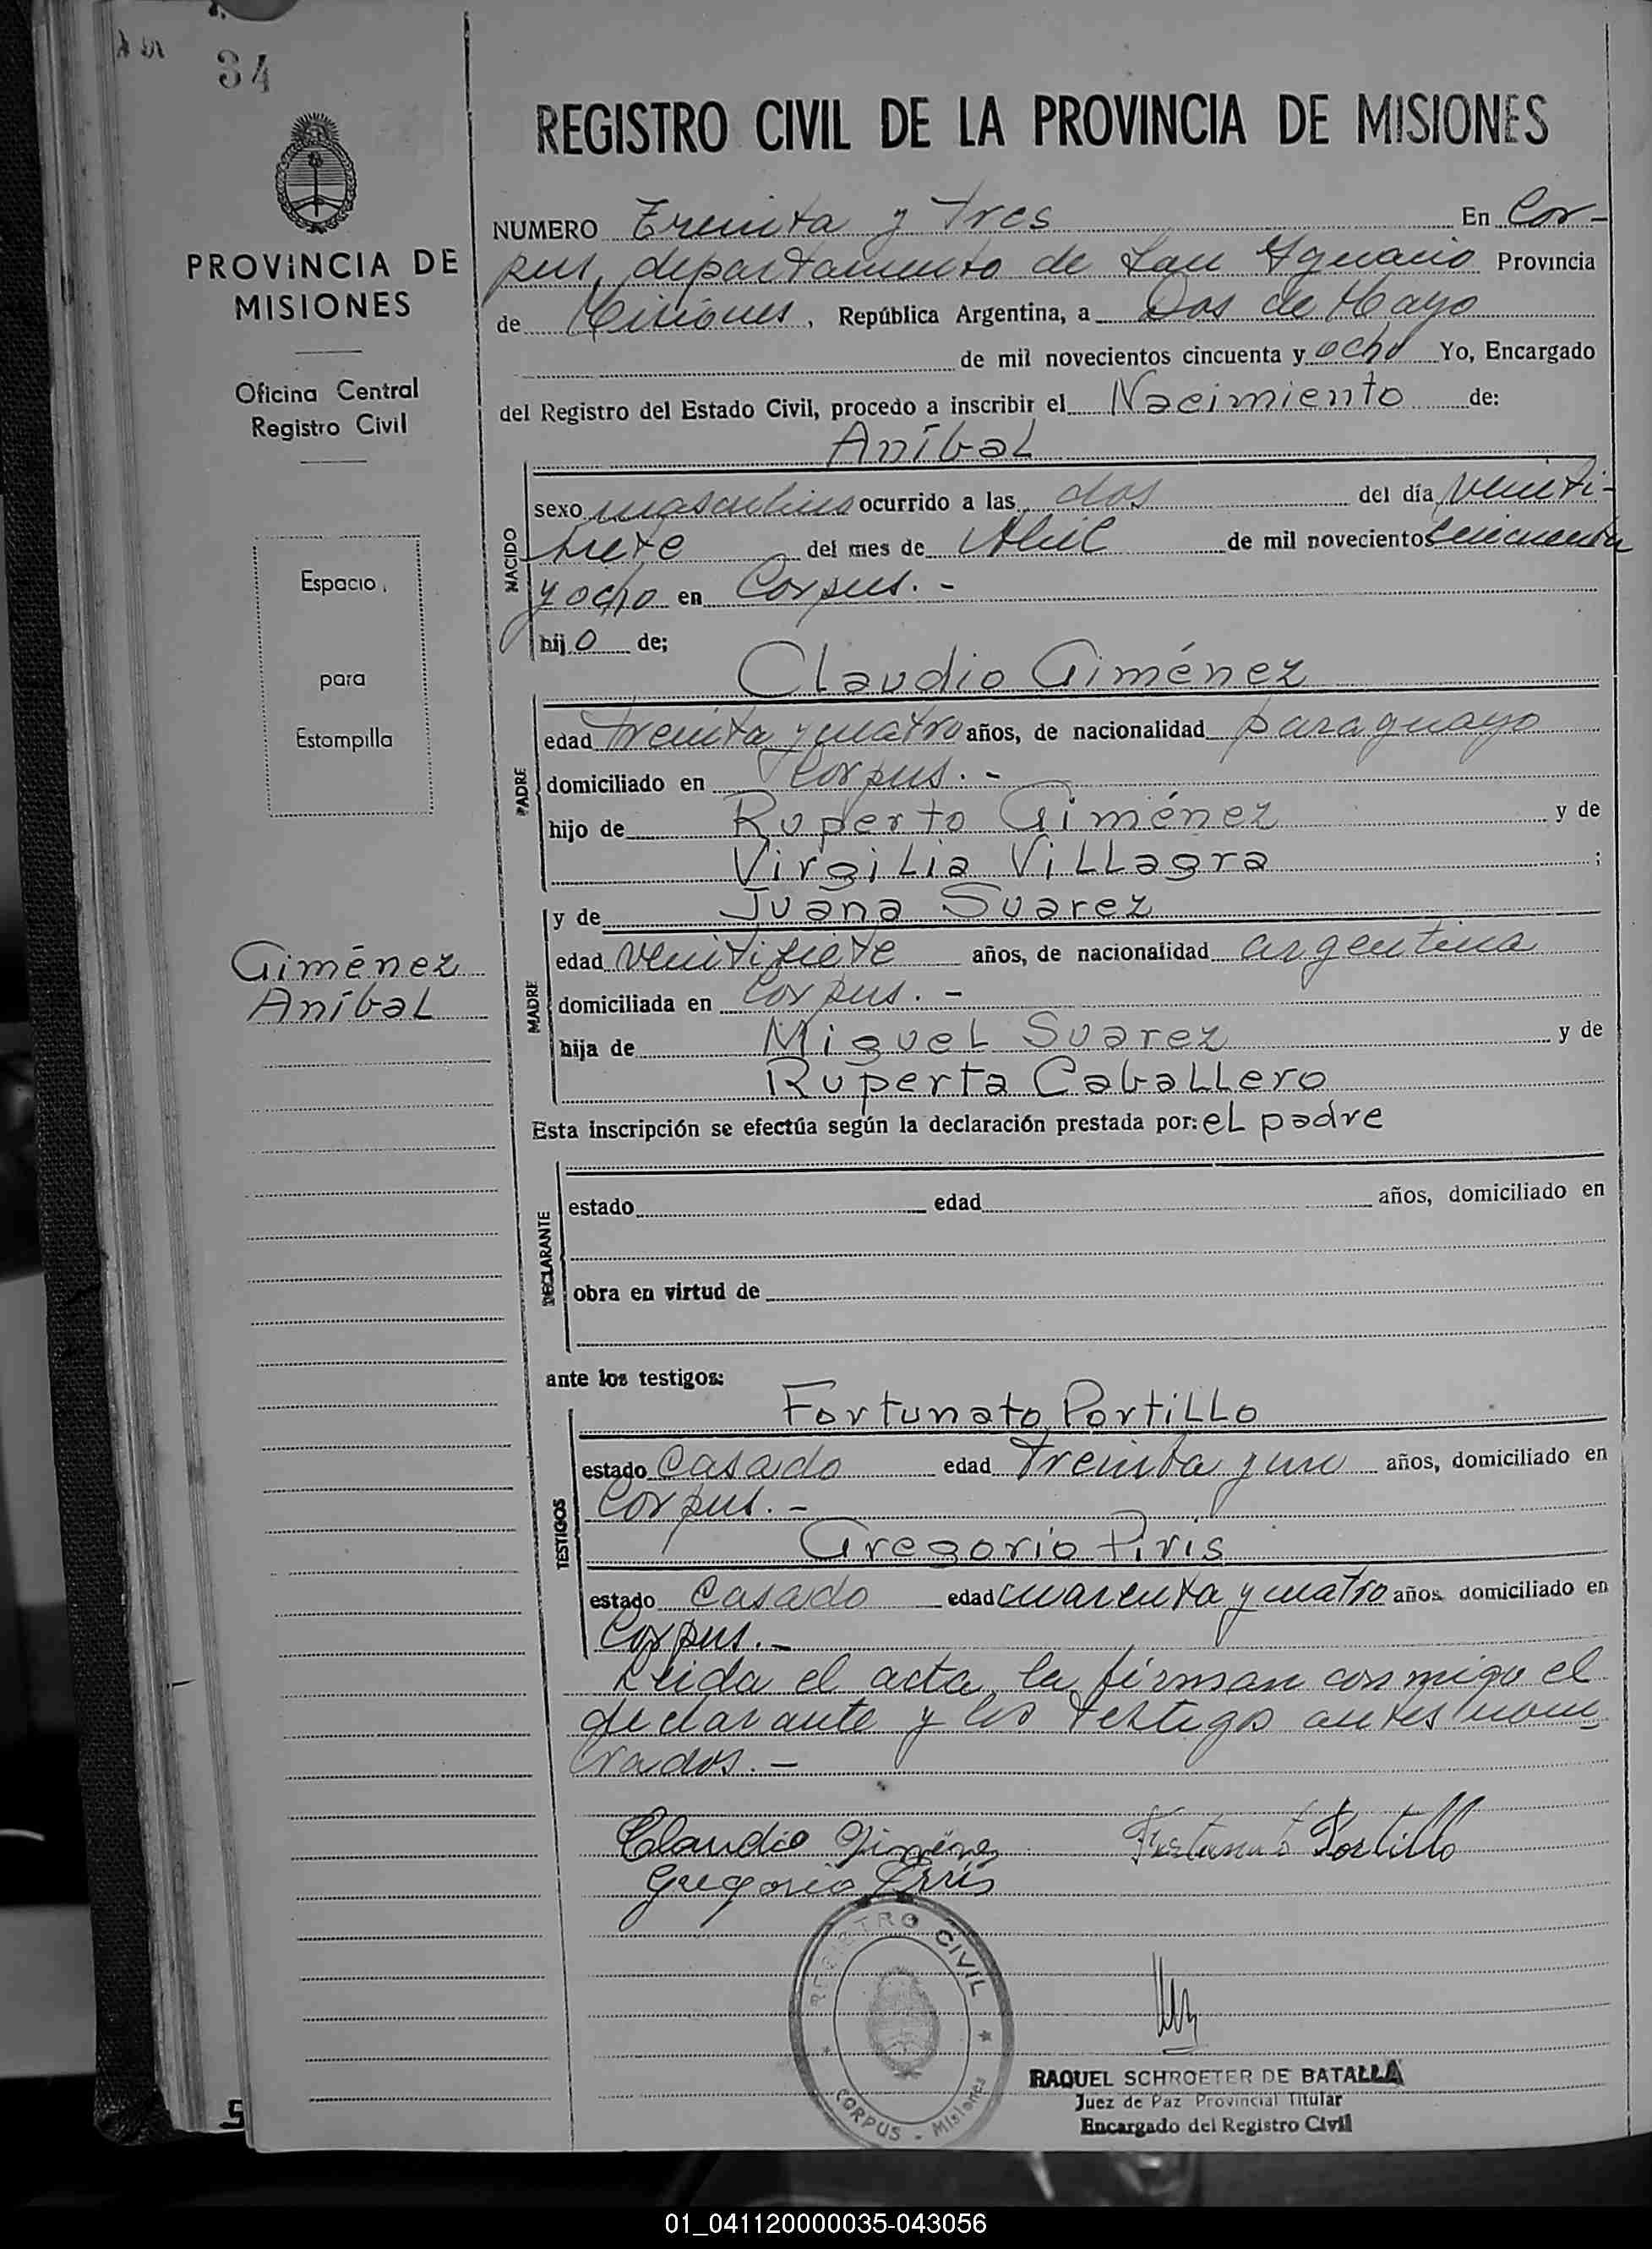 34
REGISTRO CIVIL DE LA PROVINCIA DE MISIONES
PROVINCIA DE
MISIONES
Oficina Central
Registro Civil
Espacio
para
Estompilla
Giménez
Aníbal
NUMERO Treinta y tres En Cor-
pus, departamento de San Ignacio Provincia
de Misiones, República Argentina, a Dos de Mayo
de mil novecientos cincuenta y ocho Yo, Encargado
del Registro del Estado Civil, procedo a inscribir el Nacimiento de:
Aníbal
NACIDO
sexo masculino ocurrido a las dos del día veinti-
siete del mes de Abril de mil novecientos cincuenta
y ocho en Corpus. -
hijo de;
Claudio Giménez
PADRE
edad treinta y cuatro años, de nacionalidad paraguayo
domiciliado en Corpus. -
hijo de Ruperto Giménez y de
Virgilia Villagra ;
y de Juana Suarez
MADRE
edad veintisiete años, de nacionalidad argentina
domiciliada en Corpus. -
hija de Miguel Suarez y de
Ruperta Caballero
Esta inscripción se efectúa según la declaración prestada por: el padre
DECLARANTE
estado edad años, domiciliado en
obra en virtud de
ante los testigos:
Fortunato Portillo
TESTIGOS
estado Casado edad treinta y un años, domiciliado en
Corpus. -
Gregorio Piris
estado Casado edad cuarenta y cuatro años domiciliado en
Corpus. -
Leida el acta, la firman conmigo el
declarante y los testigos antes nom
brados. -
Claudio Giménez Fortunato Portillo
Gregorio Piris
REGISTRO CIVIL
CORPUS - Misiones
RAQUEL SCHROETER DE BATALLA
Juez de Paz Provincial Titular
Encargado del Registro Civil
01_041120000035-043056